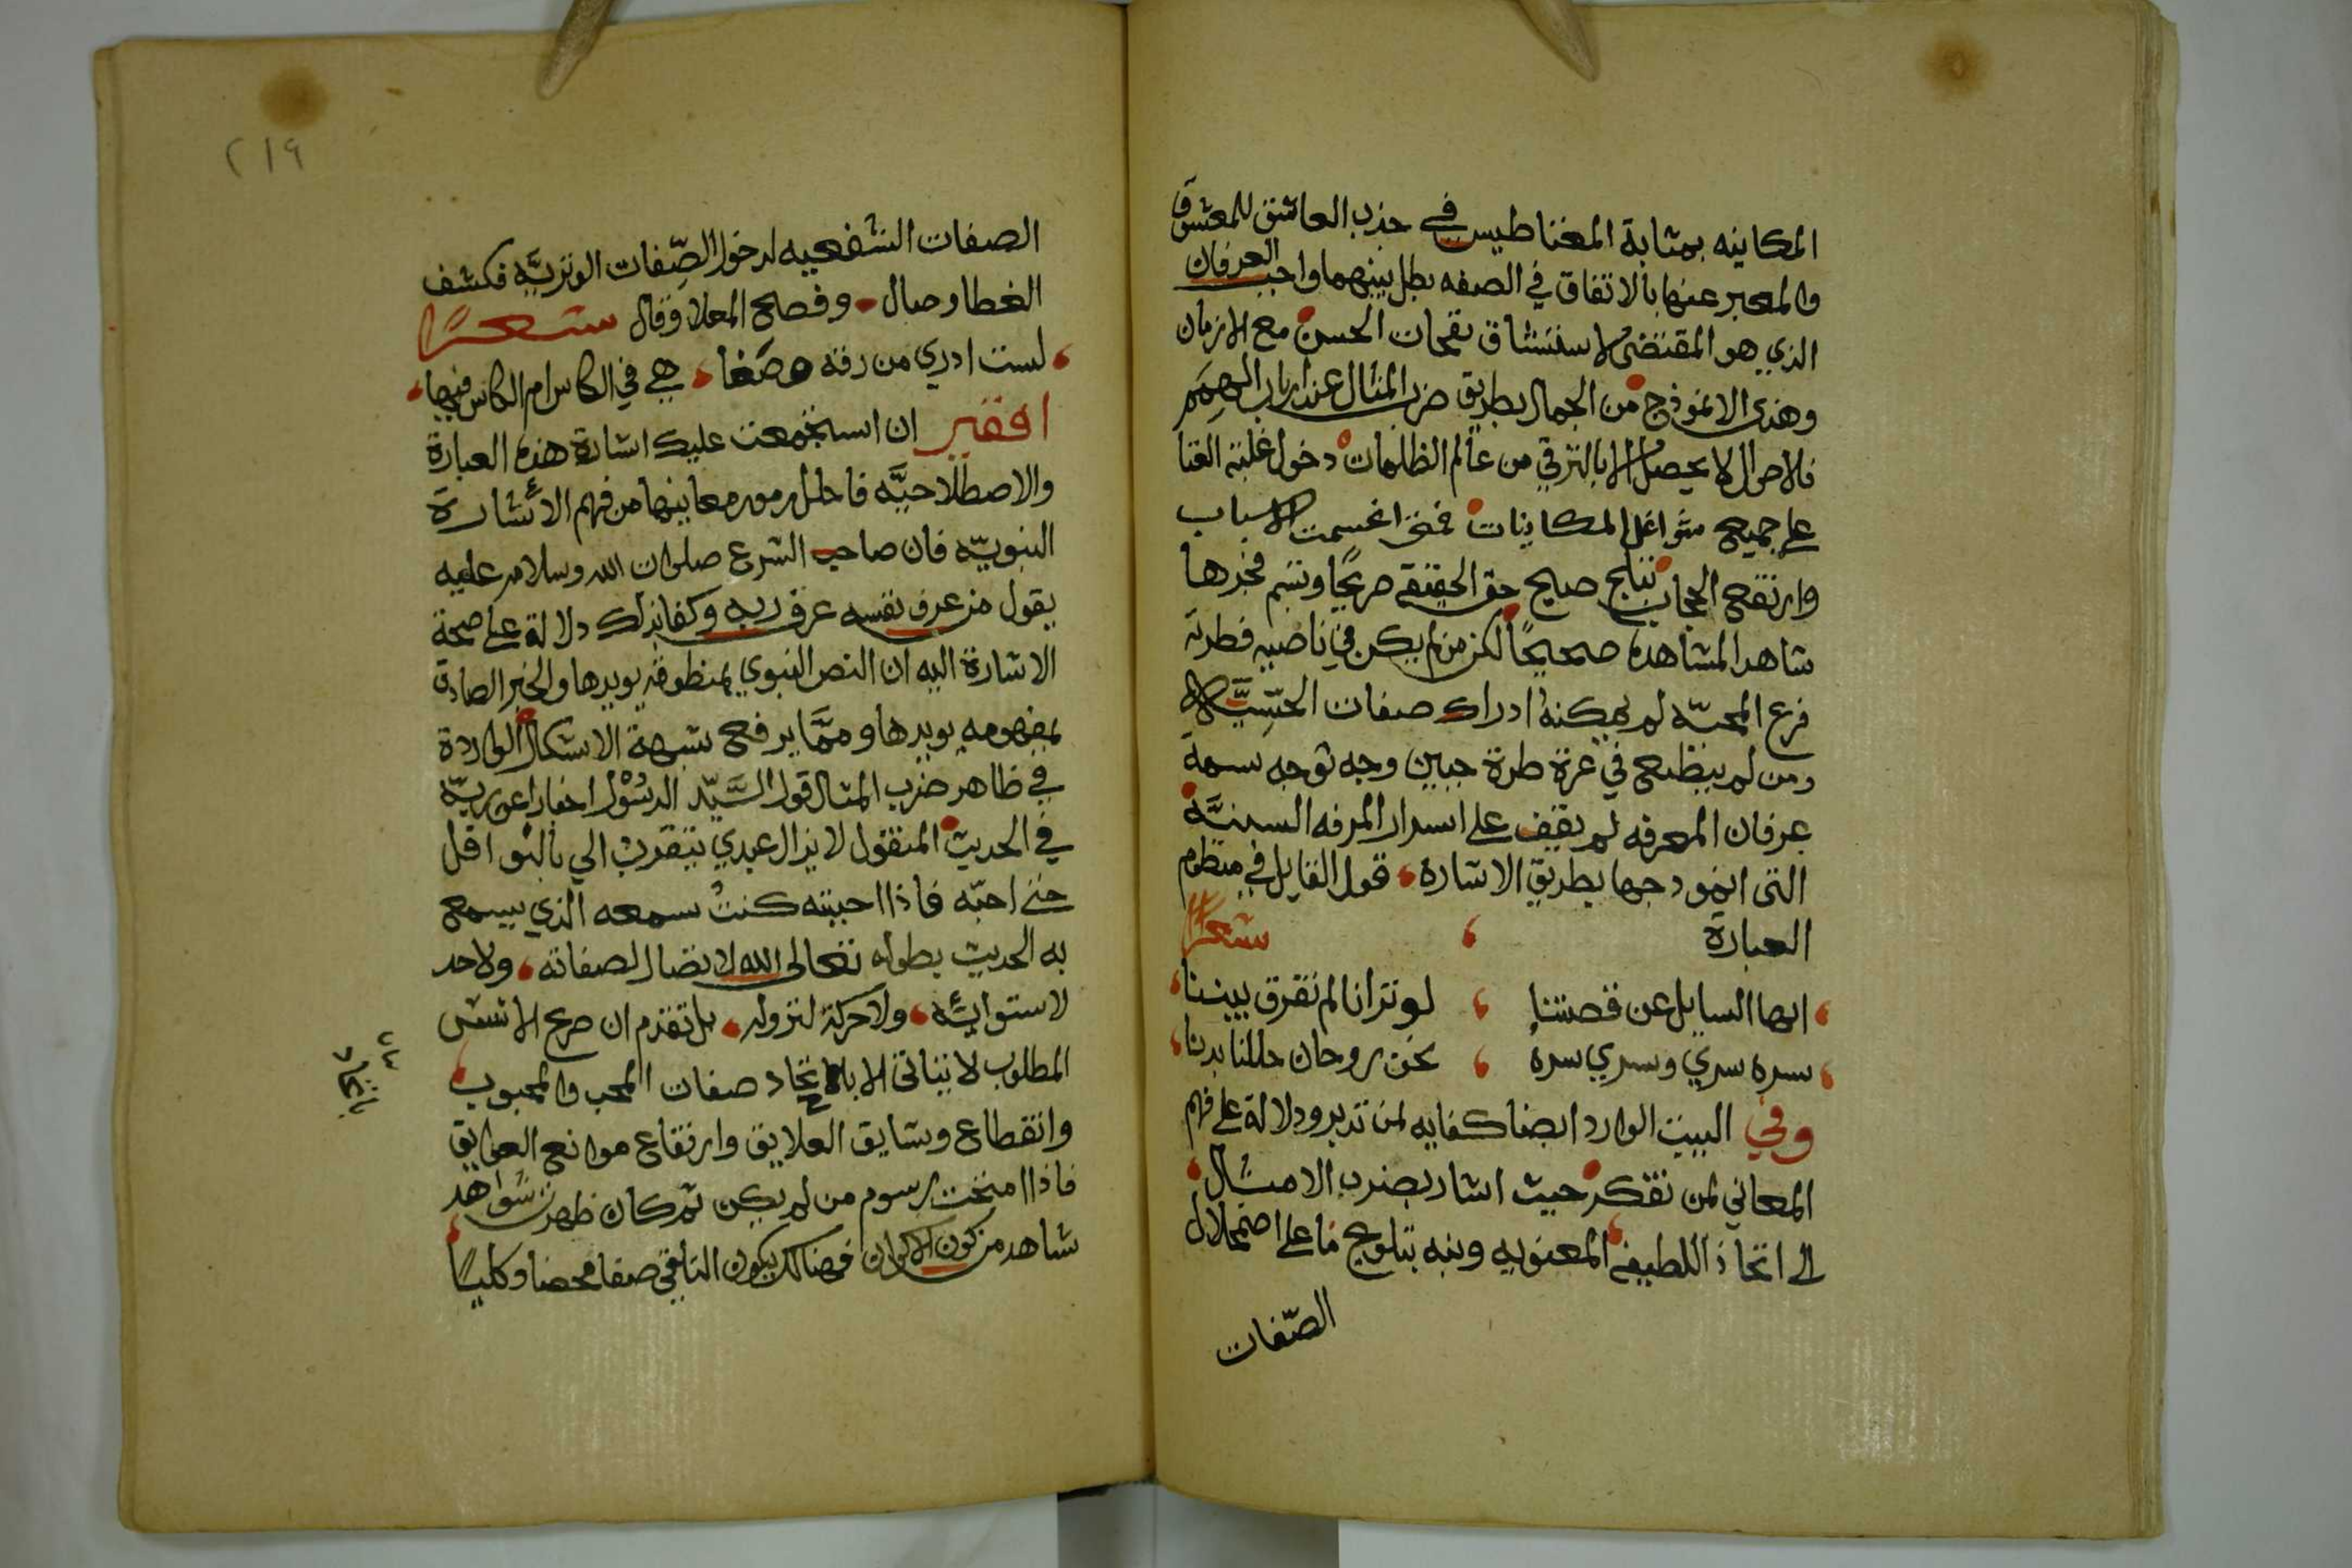 المكاينه بمثابة المغناطيس في جذب العاشق للمعشوق
والمعبر عنها بالاتفاق في الصفه بطل بينهما واجب العرفان
الذي هو المقتضى لاستنشاق نفحات الحسن مع الازمان
وهذى الانموذج من الجمال بطريق ضرب المثال عند ارباب الهمم
فلاحوال لا يحصل الا بالترقي من عالم الظلمات دخول غلبة الفنا
على جميع شواغل المكاينات فمتى انحسمت الاسباب
وارتفع الحجاب تبلج صبح حق الحقيقي صريحًا وتنسم فجرها
شاهد المشاهده صحيحًا لكن من لم يكن في ناصيه فطرته
فرع المحبّه لم يمكنه ادراك صفات الحسّيَّة الا
ومن لم ينطبع في غرة طرة جبين وجه توجه سمة
عرفان المعرفه لم يقف على اسرار المرفه السنيَّة
التى انمودجها بطريق الاشاره قول القايل في منظوم
العبارة شعرًا
ايها السايل عن قصتنا لو ترانا لم تفرق بيننا
سره سري وسري سره نحن روحان حللنا بدنا
وفي البيت الوارد ايضا كفايه لمن تدبر ودلالة على فهم
المعاني لمن تفكر حيث اشار بضرب الامثال
الى اتخاذ اللطيفه المعنويه ونبه بتلويح ما على اضمحلال
الصّفات
٢١٩
الصفات الشفعيه لدخول الصّفات الوتريَّه فكشف
الغطا وصال وفصح المعلا وقال شعرًا
لست ادري من رقه وصَفا هي في الكاس ام الكاس فيها
افقير ان استجمعت عليك اشارة هذه العبارة
والاصطلاحيَّه فاحلل رمور معاينها من فهم الأشارة
النبويّه فان صاحب الشرع صلوات الله وسلامه عليه
يقول من عرف نفسه عرف ربه وكفا بذلك دلالة على صحة
الاشارة اليه ان النص النبوي بمنطوقه يويدها والخبر الصادق
بمفهومه يويدها وممَّا يرفع شبهة الاشكال الواردة
في ظاهر ضرب المثال قول السَّيّد الرسُوْل اخفارا عن ربّه
في الحديث المنقول لا يزال عبدي يتقرب الي بالنوافل
حتى احبّه فاذا احببته كنتُ سمعه الذي يسمع
به الحديث بطوله تعالى الله لا تضال لصفاته ولا حد
لاستوائه ولا حركة لنزوله بل تقدم ان صرع الانس
المطلوب لا يتاتى الا باتحاد صفات المحب والمحبوب
باتحاد
وانقطاع وشايق العلايق وارتفاع موانع العوايق
فاذا امتحت رسوم من لم يكن ثم كان ظهرت شواهد
شاهد من كون الاكوان فهنالك يكون التلقي صفا محضا وكليًا